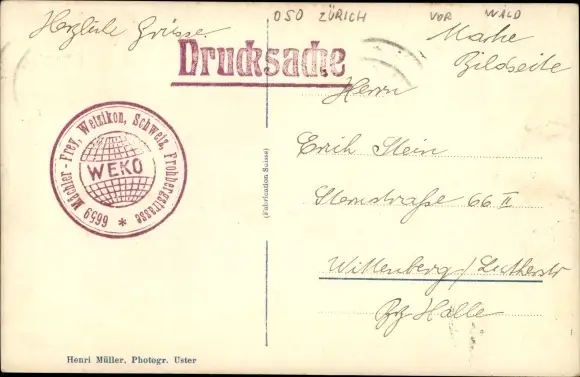 OSO ZÜRICH VOR WALD
Herzliche Grüsse
Marke
Bildseite
Drucksache
Herrn
Erich Stein
Sternstraße 66 II
Wittenberg/Lutherstr
Bz Halle
Mächler-Frey, Wetzikon, Schweiz, Frohbergstrasse
6659 *
WEKO
(Fabrication Suisse)
Henri Müller, Photogr. Uster